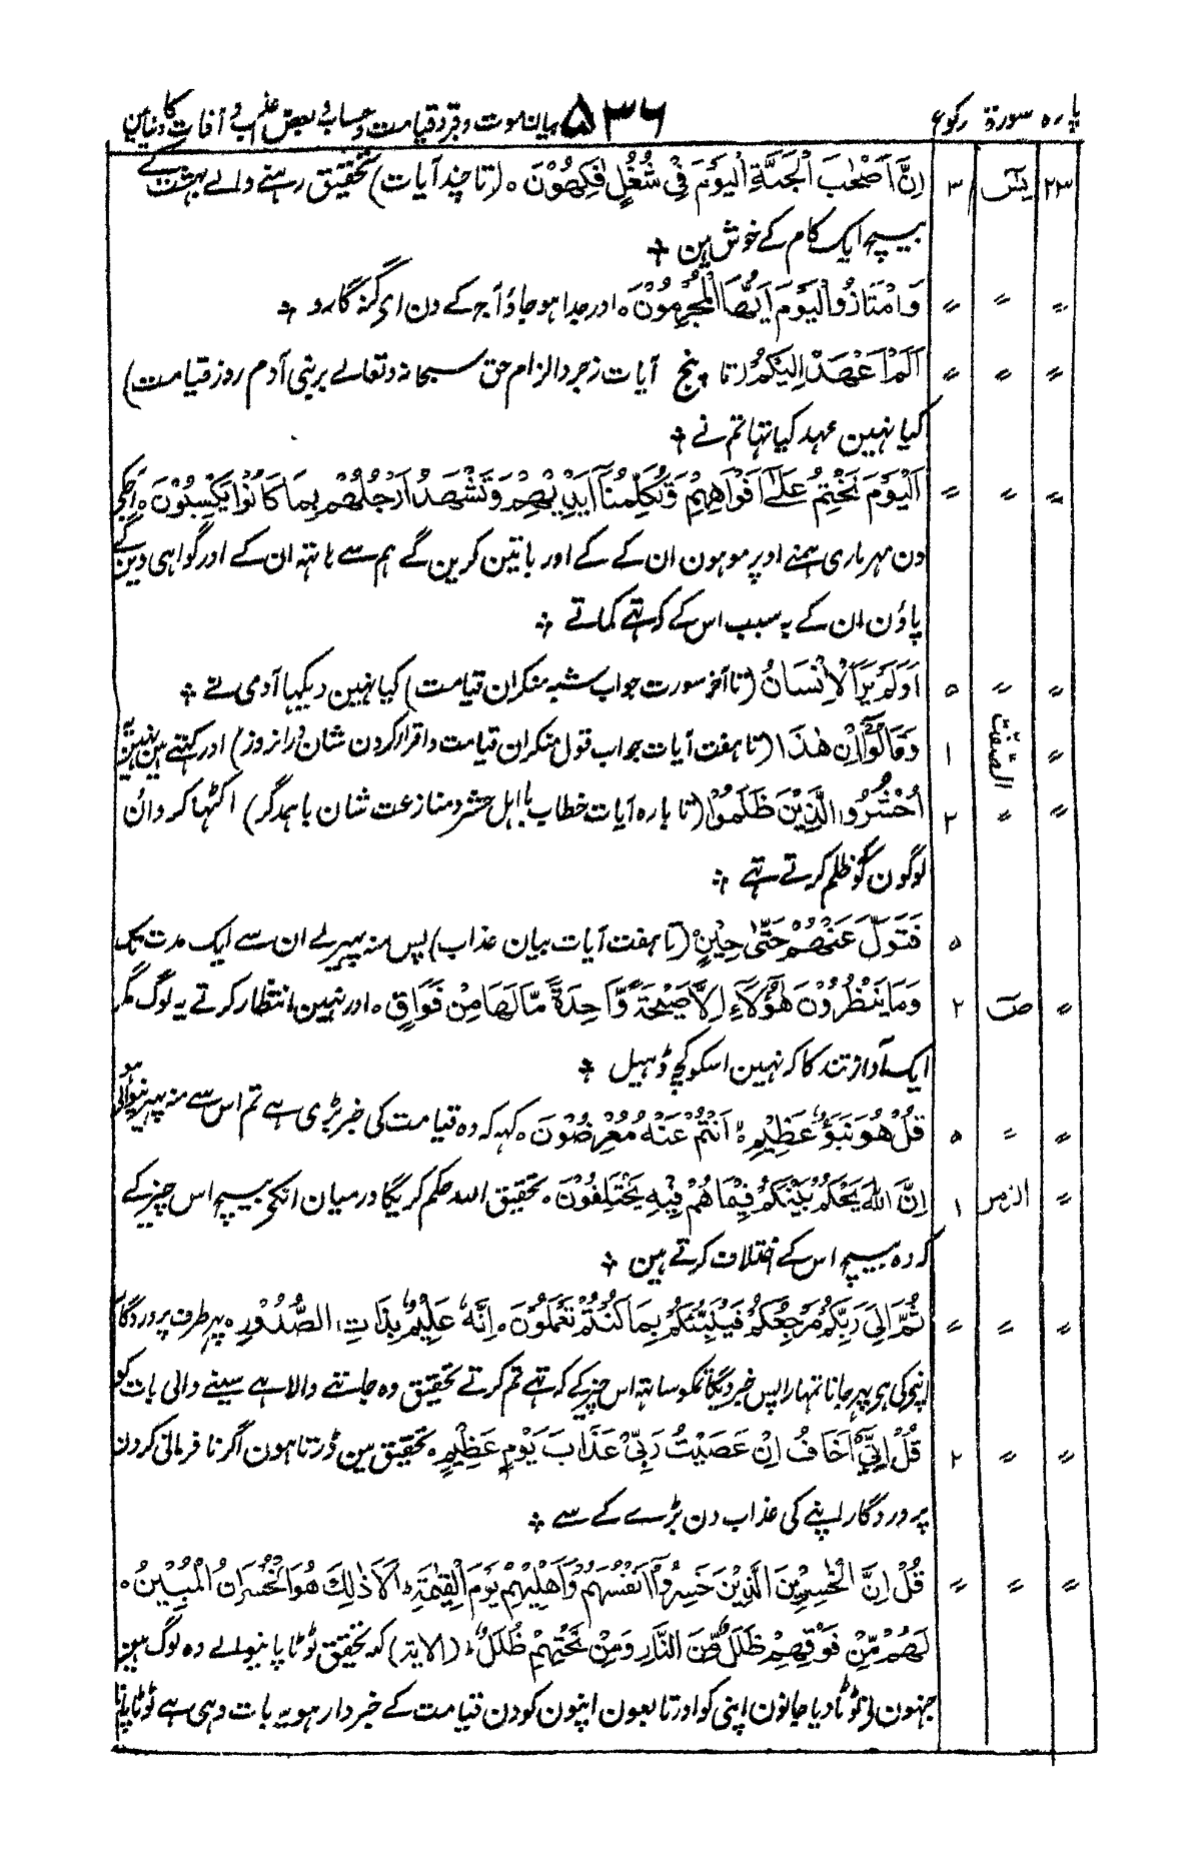 پارہ سورۃ رکوع ۵۳۶ بیان موت و قبر و قیامت و حساب و بعض عذاب و آفات کا دنیا مین
۲۳ یٰسٓ ۳ اِنَّ اَصْحٰبَ الْجَنَّةِ الْيَوْمَ فِيْ شُغُلٍ فٰكِهُوْنَ ہ (تا چند آیات) تحقیق رہنے والے بہشت کے
بیچ ایک کام کے خوش ہین ۞
〃 〃 〃 وَامْتَازُوا الْيَوْمَ اَيُّهَا الْمُجْرِمُوْنَ ہ اور جدا ہو جاؤ آج کے دن ای گنہگارو ۞
〃 〃 〃 اَلَمْ اَعْهَدْ اِلَيْكُمْ (تا پنج آیات زجر و الزام حق سبحانہ و تعالے بر بنی آدم روز قیامت)
کیا نہین عہد کیا تہا تم نے ۞
〃 〃 〃 اَلْيَوْمَ نَخْتِمُ عَلٰٓى اَفْوَاهِهِمْ وَتُكَلِّمُنَآ اَيْدِيْهِمْ وَتَشْهَدُ اَرْجُلُهُمْ بِمَا كَانُوْا يَكْسِبُوْنَ ہ آجکے
دن مہر ماری ہمنے اوپر موہون ان کے کے اور باتین کرین گے ہم سے ہاتہ ان کے اور گواہی دین گے
پاؤن ان کے بہ سبب اس کے کہ تہے کماتے ۞
〃 〃 ۵ اَوَلَمْ يَرَ الْاِنْسَانُ (تا آخر سورت جواب شبہ منکران قیامت) کیا نہین دیکہا آدمی نے ۞
〃 الصّٰفّٰت ۱ وَقَالُوْٓا اِنْ هٰذَا (تا ہفت آیات جواب قول منکران قیامت و اقرار کردن شان در انروز) اور کہتے ہین نہین یہ
〃 〃 ۲ اُحْشُرُوا الَّذِيْنَ ظَلَمُوْا (تا بارہ آیات خطاب با اہل حشر و منازعت شان باہمدگر) اکٹہا کرو ان
لوگون کو ظلم کرتے تہے ۞
۵ فَتَوَلَّ عَنْهُمْ حَتّٰى حِيْنٍ (تا ہفت آیات بیان عذاب) پس منہ پہیر لے ان سے ایک مدت تک
〃 صٓ ۲ وَمَا يَنْظُرُوْنَ هٰٓؤُلَآءِ اِلَّا صَيْحَةً وَّاحِدَةً مَّا لَهَا مِنْ فَوَاقٍ ہ اور نہین انتظار کرتے یہ لوگ مگر
ایک آواز تند کا کہ نہین اسکو کچ ڈہیل ۞
〃 〃 ۵ قُلْ هُوَ نَبَؤٌ عَظِيْمٌ اَنْتُمْ عَنْهُ مُعْرِضُوْنَ ہ کہہ کہ وہ قیامت کی خبر بڑی ہے تم اس سے منہ پہیرنیوالے ہو
〃 الزمر ۱ اِنَّ اللّٰهَ يَحْكُمُ بَيْنَهُمْ فِيْمَا هُمْ فِيْهِ يَخْتَلِفُوْنَ ہ تحقیق اللہ حکم کریگا درمیان انکی بیچ اس چیز کے
کہ وہ بیچ اس کے اختلاف کرتے ہین ۞
〃 〃 〃 ثُمَّ اِلٰى رَبِّكُمْ مَرْجِعُكُمْ فَيُنَبِّئُكُمْ بِمَا كُنْتُمْ تَعْمَلُوْنَ ہ اِنَّهٗ عَلِيْمٌۢ بِذَاتِ الصُّدُوْرِ ہ پہر طرف پروردگار
اپنی کی ہی پہر جانا تمہارا پس خبر دیگا تمکو ساتہ اس چیز کے کہ تہے تم کرتے تحقیق وہ جاننے والا ہے سینے والی بات کو
〃 〃 ۲ قُلْ اِنِّيْٓ اَخَافُ اِنْ عَصَيْتُ رَبِّيْ عَذَابَ يَوْمٍ عَظِيْمٍ ہ تحقیق مین ڈرتا ہون اگر نافرمانی کرون
پروردگار اپنے کی عذاب دن بڑے کے سے ۞
〃 〃 〃 قُلْ اِنَّ الْخٰسِرِيْنَ الَّذِيْنَ خَسِرُوْٓا اَنْفُسَهُمْ وَاَهْلِيْهِمْ يَوْمَ الْقِيٰمَةِ اَلَا ذٰلِكَ هُوَ الْخُسْرَانُ الْمُبِيْنُ ہ
لَهُمْ مِّنْ فَوْقِهِمْ ظُلَلٌ مِّنَ النَّارِ وَمِنْ تَحْتِهِمْ ظُلَلٌ (الایۃ) کہہ تحقیق ٹوٹا پانیوالے وہ لوگ ہین
جنہون نے ٹوٹا دیا جانون اپنی کو اور تابعون اپنون کو دن قیامت کے خبردار ہو یہ بات وہی ہے ٹوٹا پانا